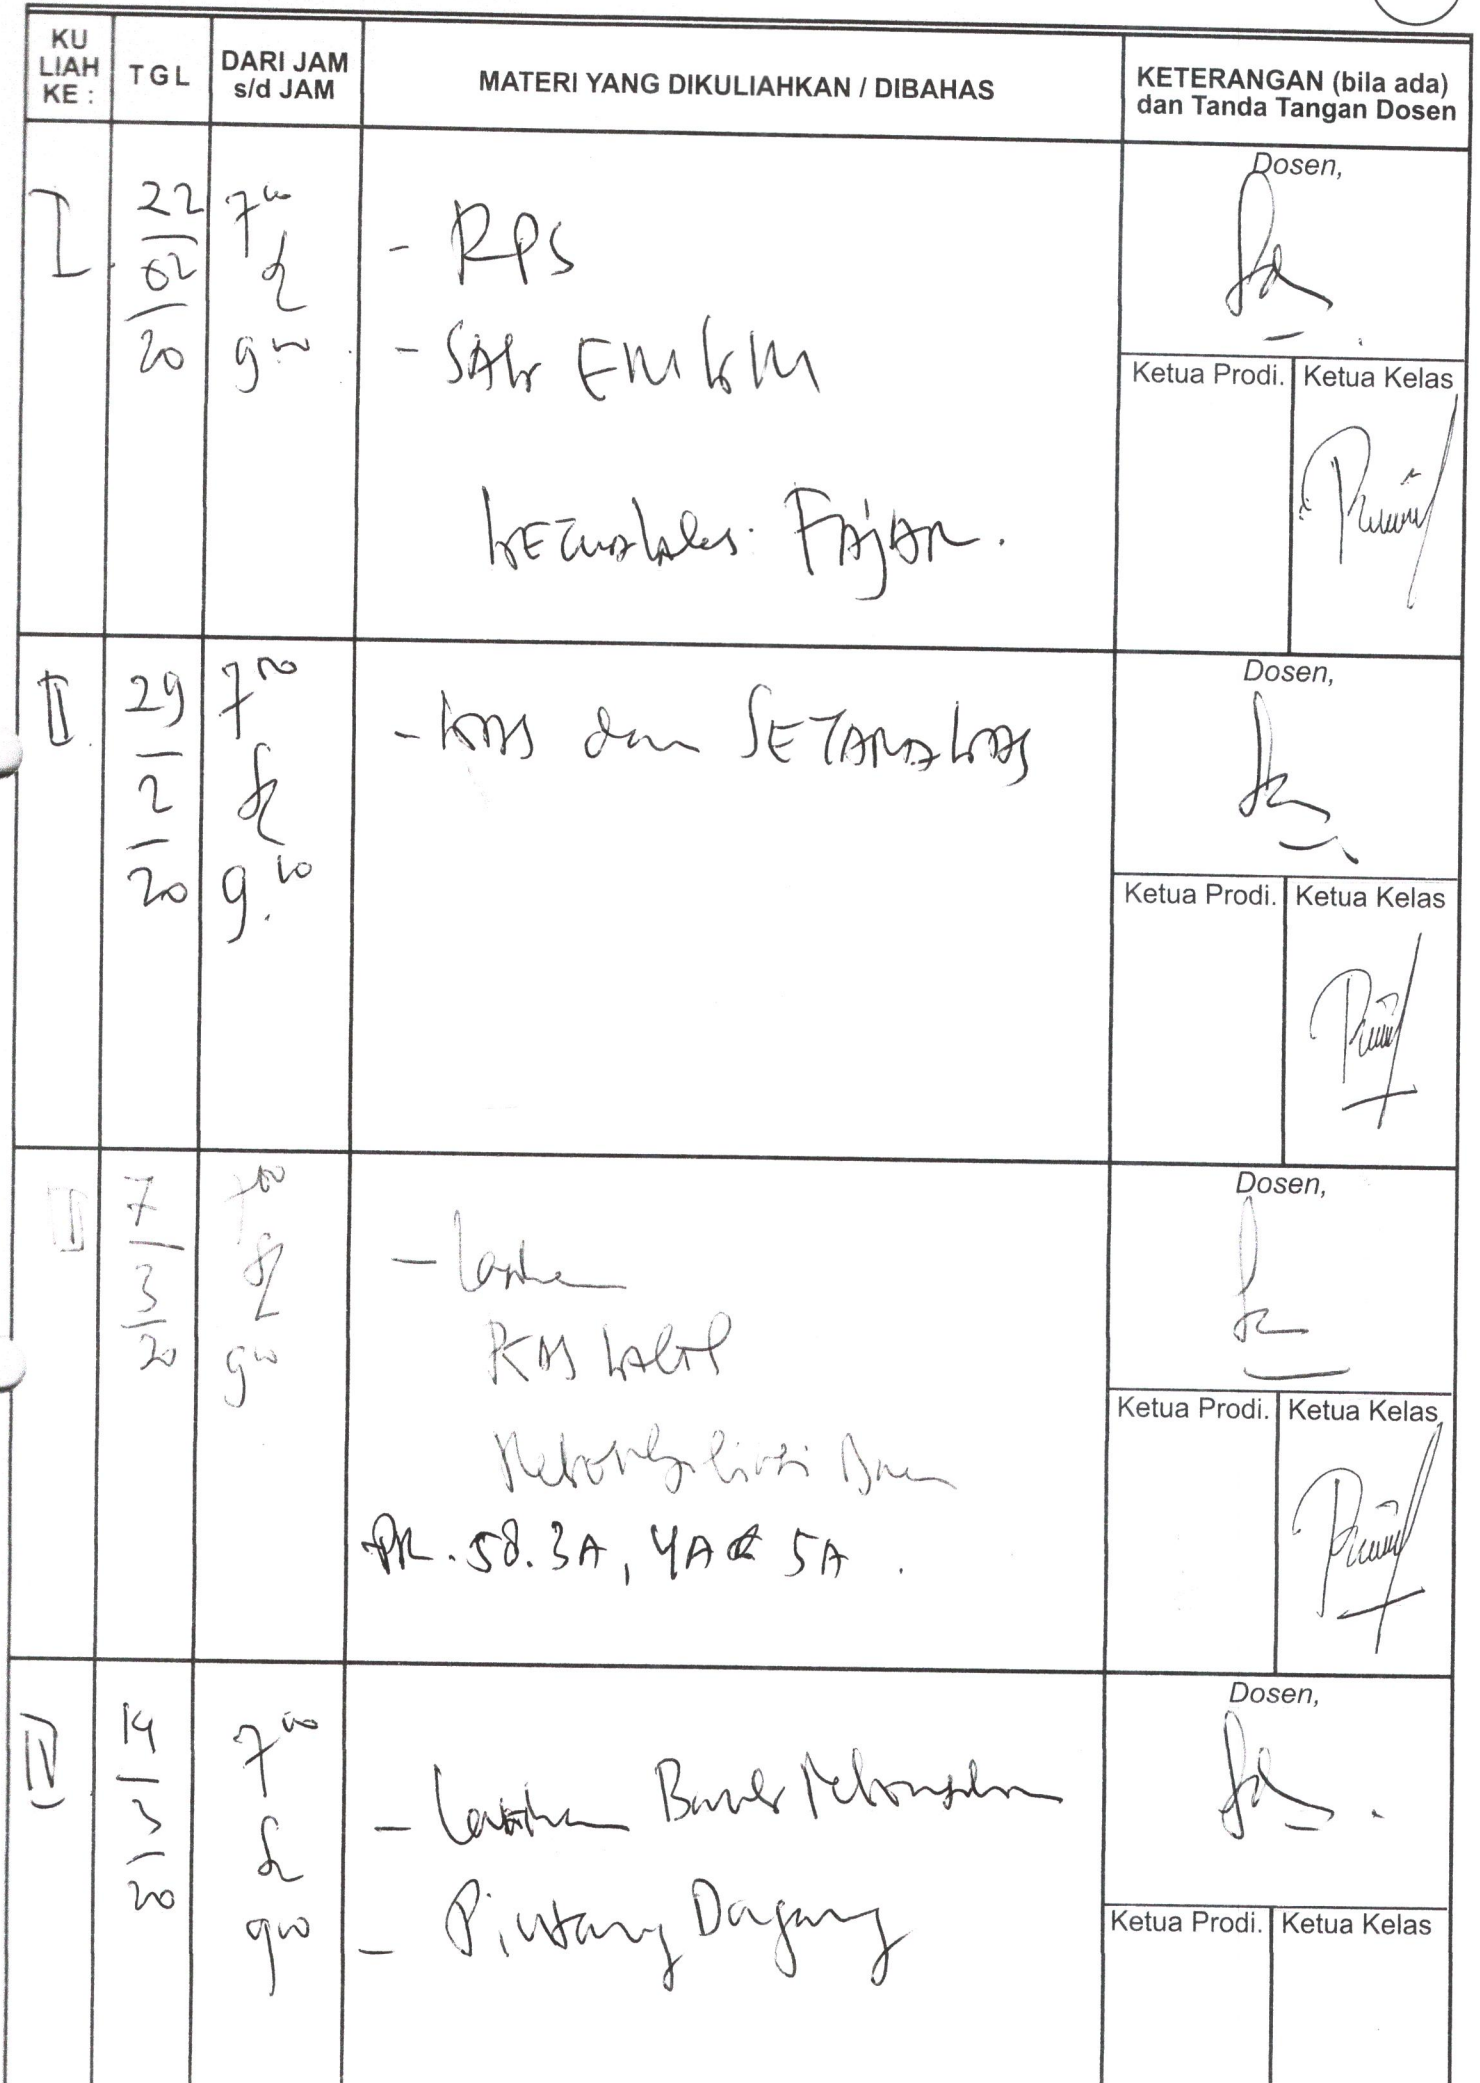 KU
LIAH
KE :
TGL
DARI JAM
s/d JAM
MATERI YANG DIKULIAHKAN / DIBAHAS
KETERANGAN (bila ada)
dan Tanda Tangan Dosen
I.
22
02
20
7 00
s/d
9 00
- RPS
- SAK EMKM
KETUA Kelas: FAJAR.
Dosen,
Ketua Prodi.
Ketua Kelas
II.
29
2
20
7 00
s/d
9. 00
- KAS dan SETARA KAS
Dosen,
Ketua Prodi.
Ketua Kelas
III
7
3
20
7 00
s/d
9 00
- Latihan
KAS kecil
Rekonsiliasi Bank
PR. 58. 3A, 4A & 5A.
Dosen,
Ketua Prodi.
Ketua Kelas
IV
14
3
20
7 00
s/d
9 00
- Latihan Bank
- Piutang Dagang
Dosen,
Ketua Prodi.
Ketua Kelas